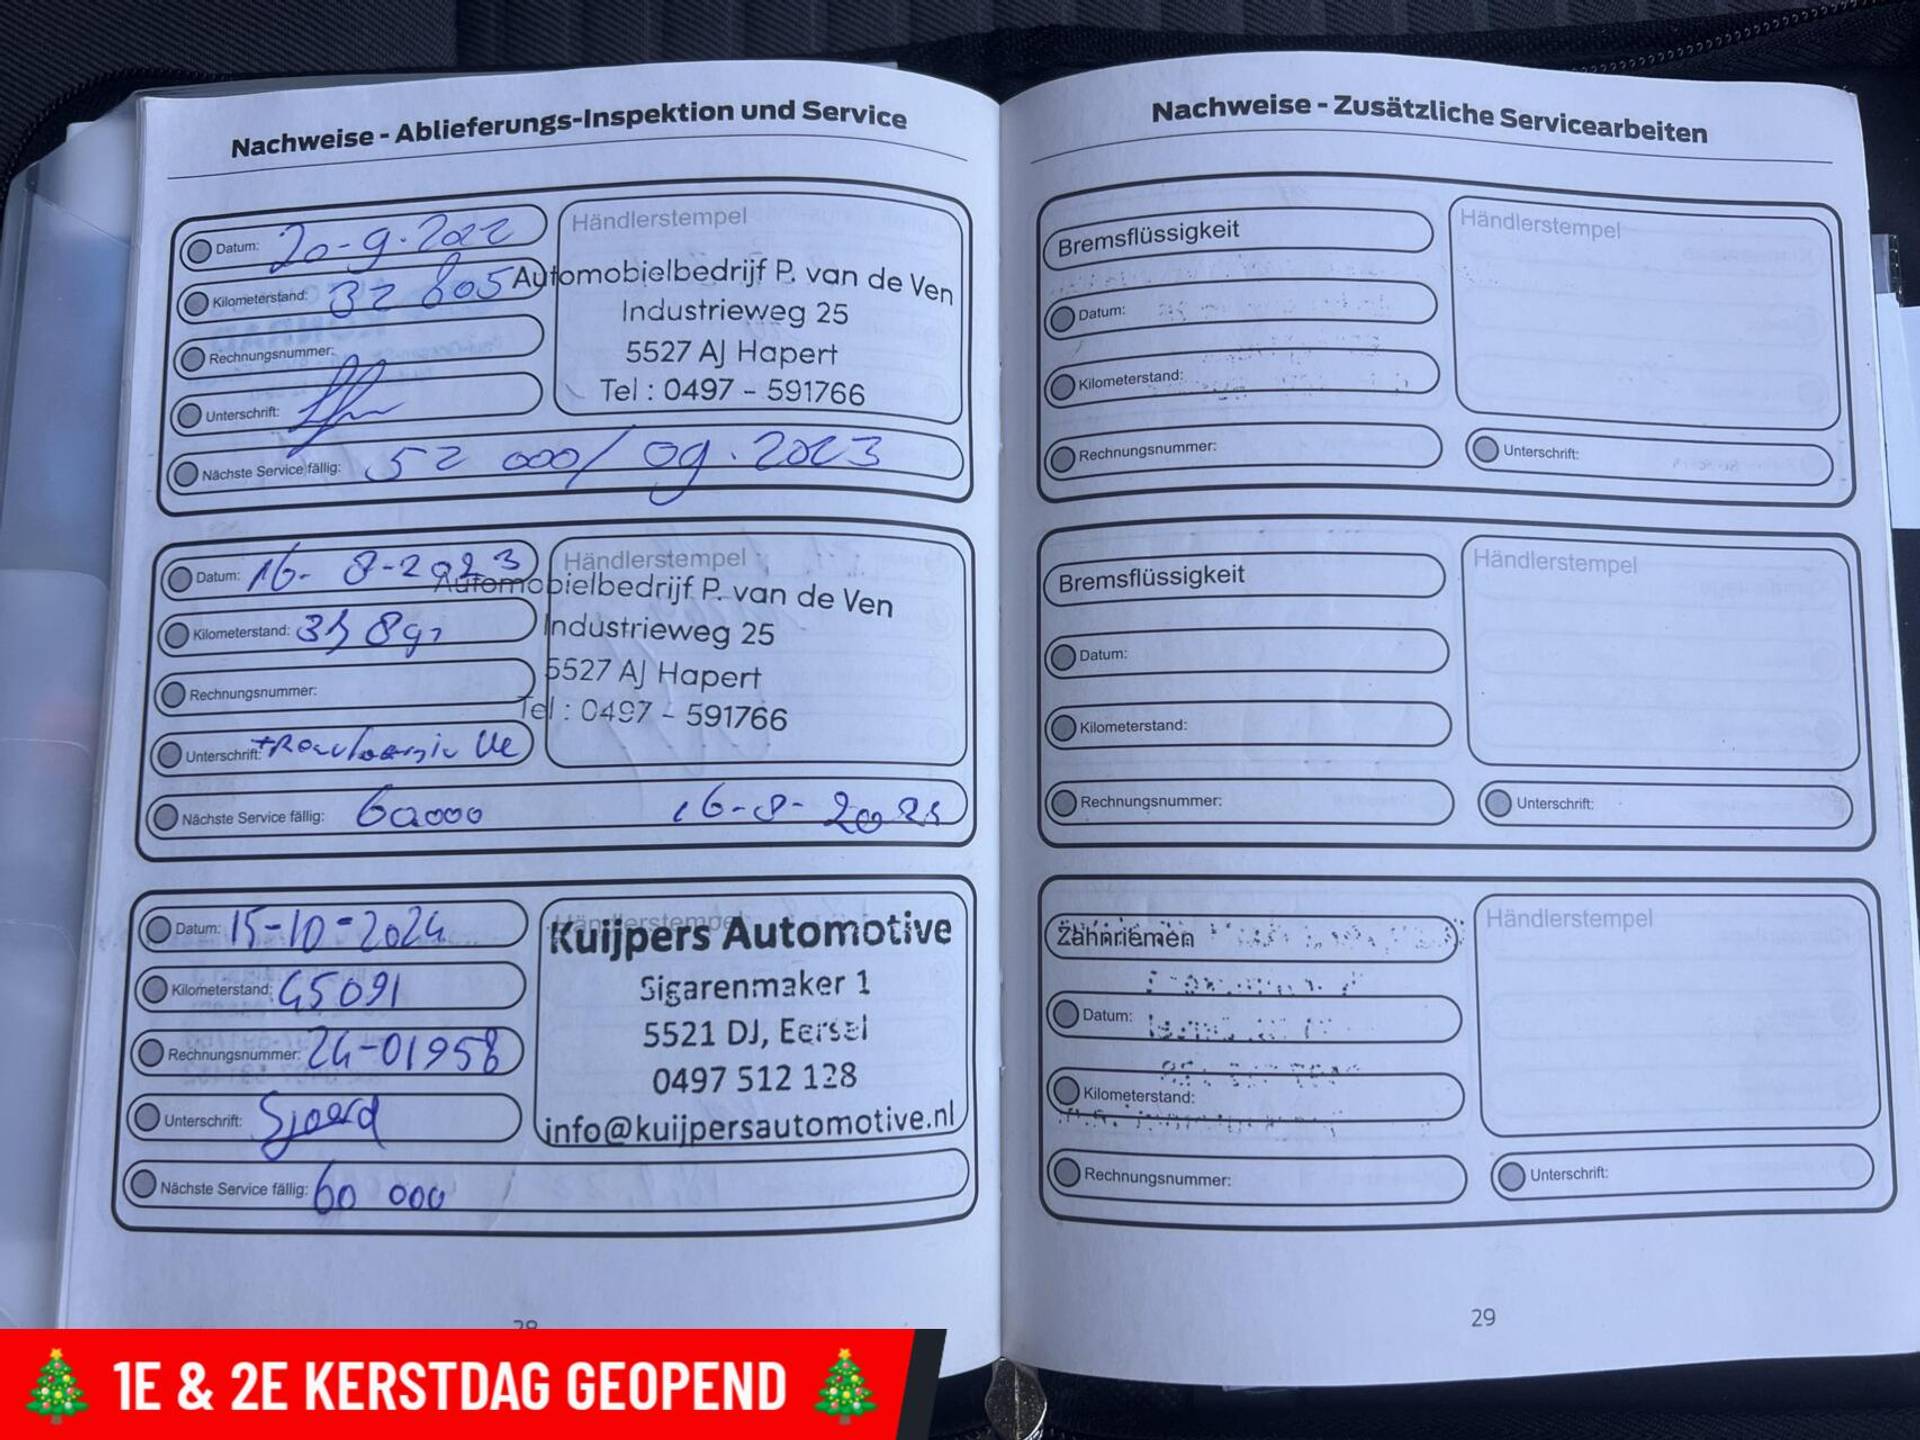 Nachweise - Ablieferungs-Inspektion und Service
Datum: 20-9-2022
Kilometerstand: 32 805
Rechnungsnummer:
Unterschrift:
Nächste Service fällig: 52 000 / 09.2023
Händlerstempel
Automobielbedrijf P. van de Ven
Industrieweg 25
5527 AJ Hapert
Tel : 0497 - 591766
Datum: 16-8-2023
Kilometerstand:
Rechnungsnummer:
Unterschrift:
Nächste Service fällig: 60000 16-8-
Händlerstempel
Automobielbedrijf P. van de Ven
Industrieweg 25
5527 AJ Hapert
Tel : 0497 - 591766
Datum: 15-10-2024
Kilometerstand: 45091
Rechnungsnummer: 24-01958
Unterschrift: Sjoerd
Nächste Service fällig: 60 000
Händlerstempel
Kuijpers Automotive
Sigarenmaker 1
5521 DJ, Eersel
0497 512 128
info@kuijpersautomotive.nl
Nachweise - Zusätzliche Servicearbeiten
Bremsflüssigkeit
Datum:
Kilometerstand:
Rechnungsnummer:
Händlerstempel
Unterschrift:
Bremsflüssigkeit
Datum:
Kilometerstand:
Rechnungsnummer:
Händlerstempel
Unterschrift:
Zahnriemen
Datum:
Kilometerstand:
Rechnungsnummer:
Händlerstempel
Unterschrift:
29
1E & 2E KERSTDAG GEOPEND